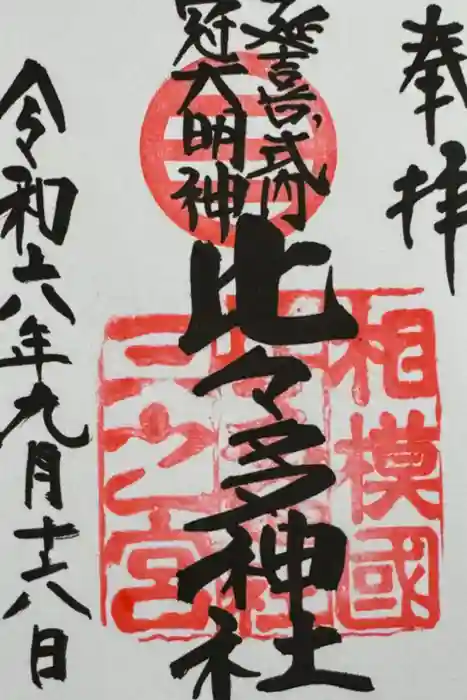 奉拝
延喜式内
冠大明神
比々多神社
相模國
三之宮
令和六年九月十八日